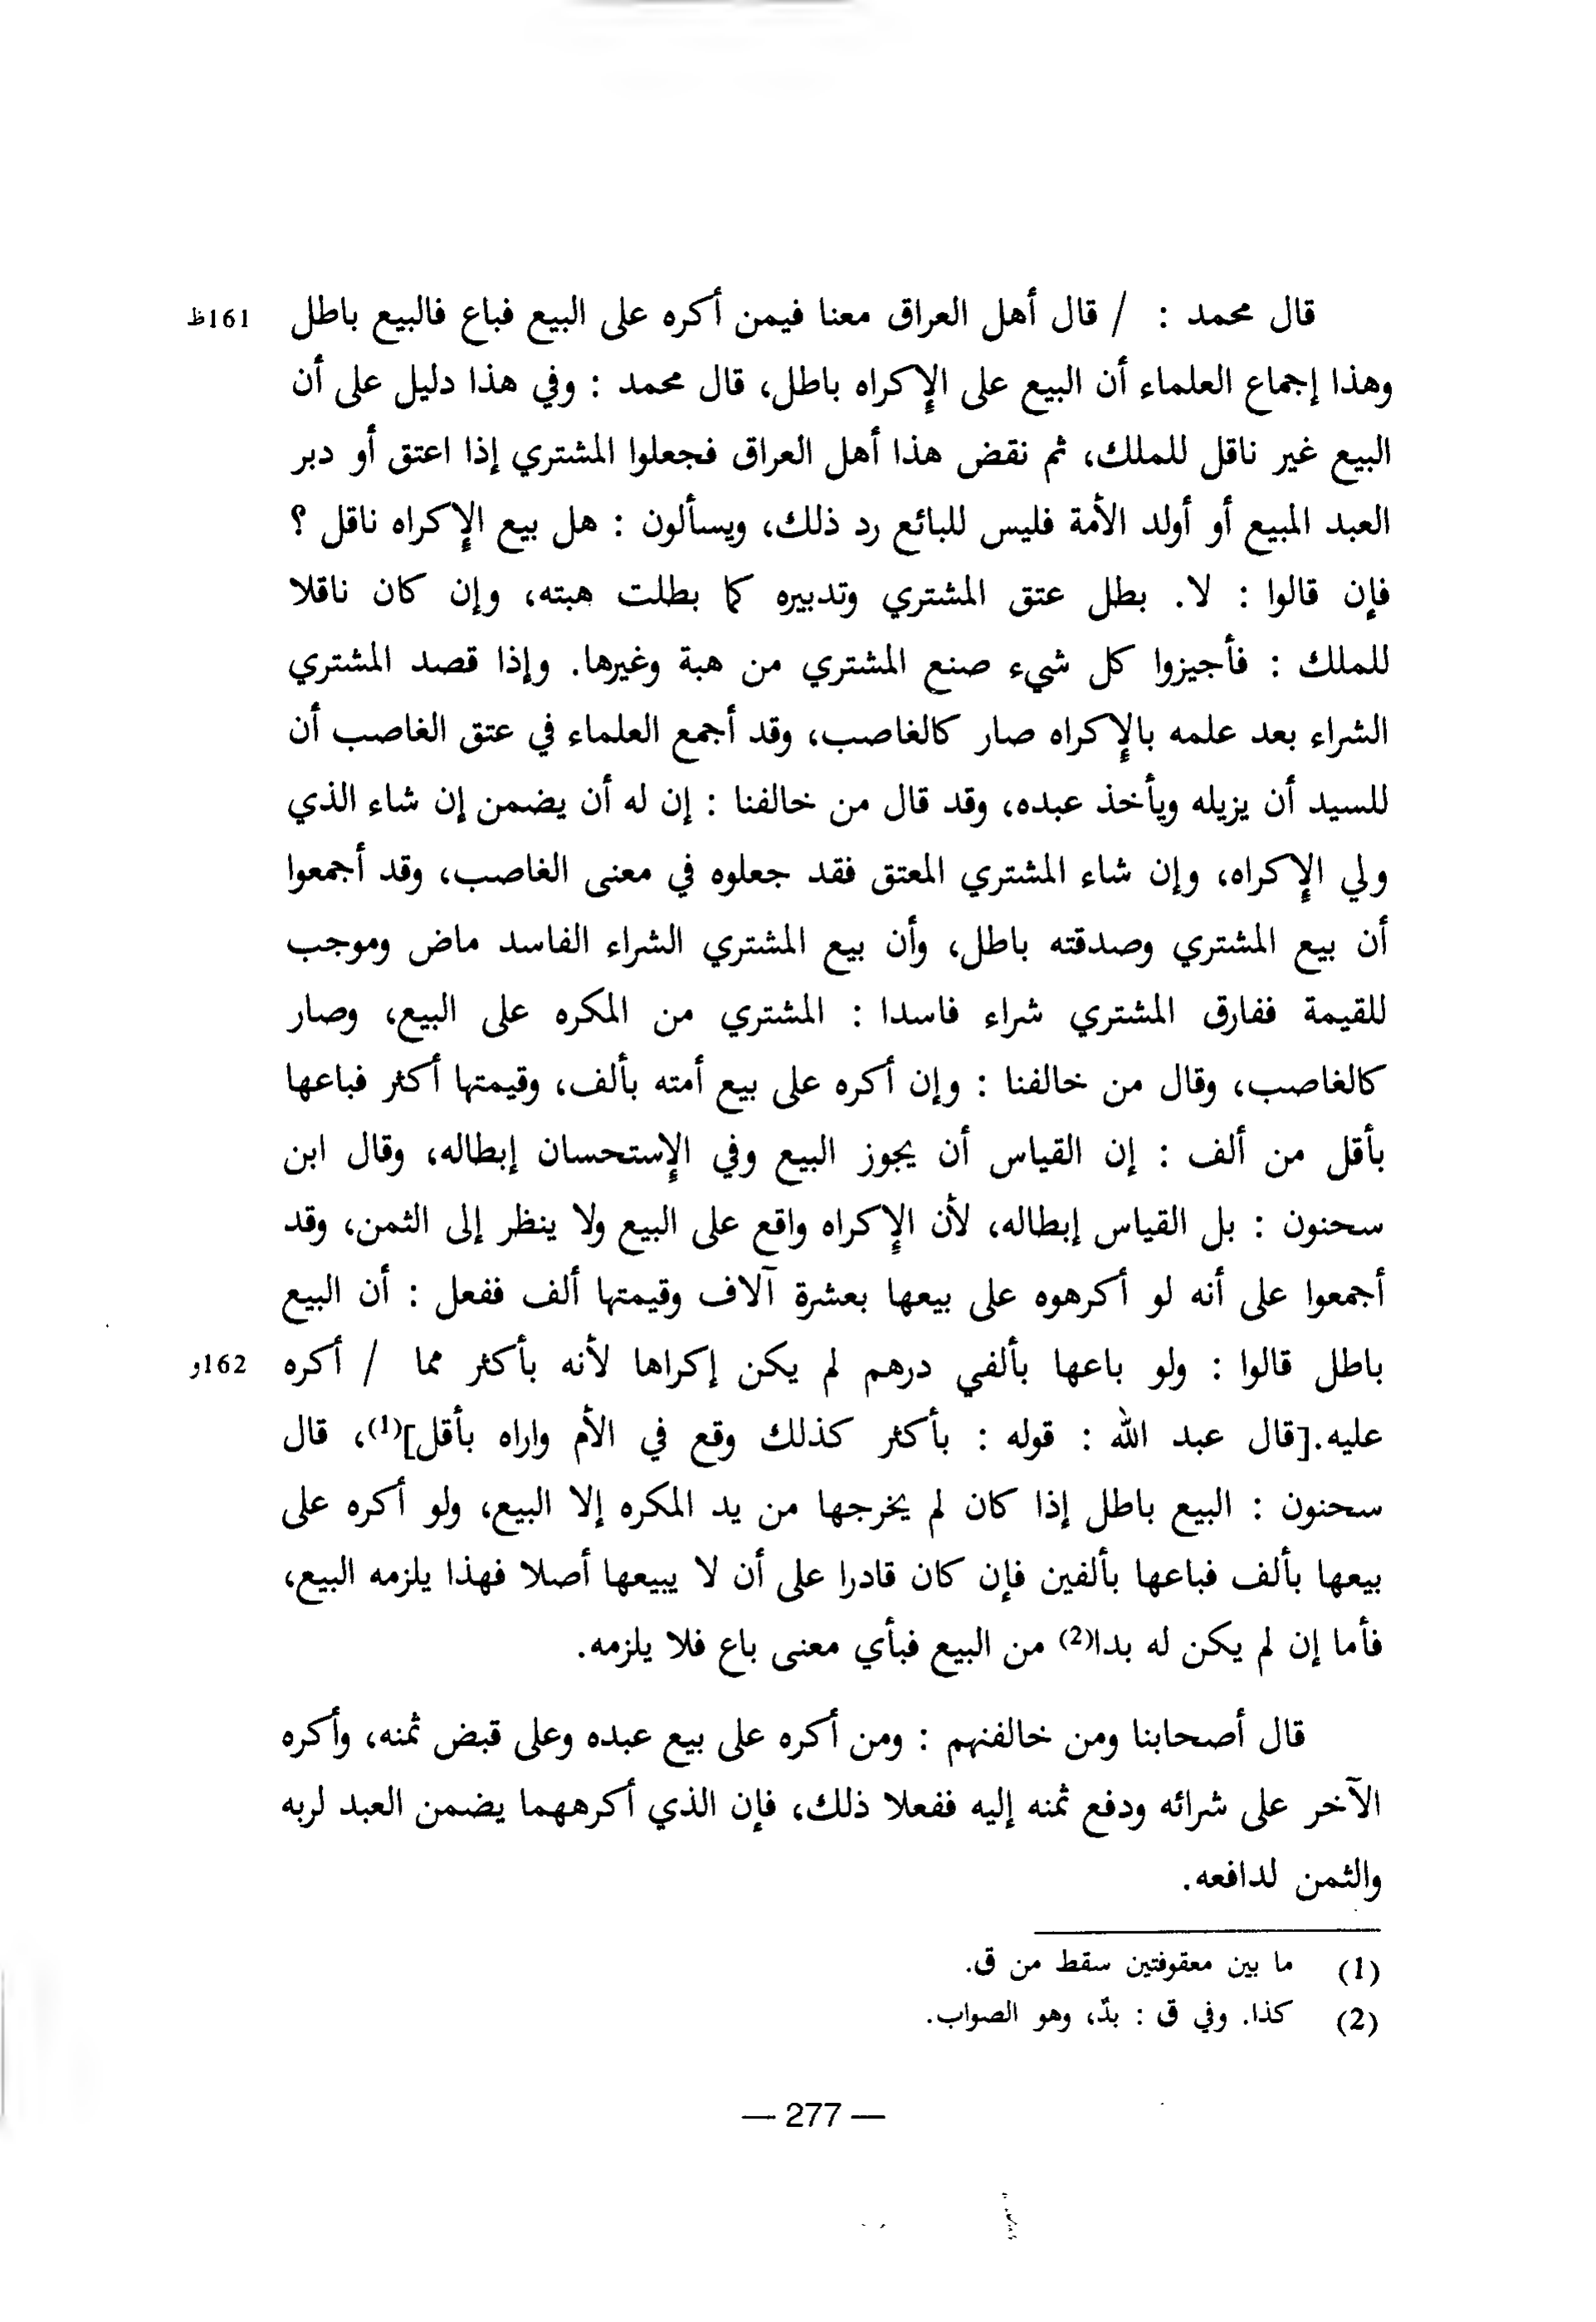 قال محمد : / قال أهل العراق معنا فيمن أكره على البيع فباع فالبيع باطل 161ظ
وهذا إجماع العلماء أن البيع على الإكراه باطل، قال محمد : وفي هذا دليل على أن
البيع غير ناقل للملك، ثم نقض هذا أهل العراق فجعلوا المشتري إذا اعتق أو دبر
العبد المبيع أو أولد الأمة فليس للبائع رد ذلك، ويسألون : هل بيع الإكراه ناقل ؟
فإن قالوا : لا. بطل عتق المشتري وتدبيره كما بطلت هبته، وإن كان ناقلا
للملك : فأجيزوا كل شيء صنع المشتري من هبة وغيرها. وإذا قصد المشتري
الشراء بعد علمه بالإكراه صار كالغاصب، وقد أجمع العلماء في عتق الغاصب أن
للسيد أن يزيله ويأخذ عبده، وقد قال من خالفنا : إن له أن يضمن إن شاء الذي
ولي الإكراه، وإن شاء المشتري المعتق فقد جعلوه في معنى الغاصب، وقد أجمعوا
أن بيع المشتري وصدقته باطل، وأن بيع المشتري الشراء الفاسد ماض وموجب
للقيمة ففارق المشتري شراء فاسدا : المشتري من المكره على البيع، وصار
كالغاصب، وقال من خالفنا : وإن أكره على بيع أمته بألف، وقيمتها أكثر فباعها
بأقل من ألف : إن القياس أن يجوز البيع وفي الإستحسان إبطاله، وقال ابن
سحنون : بل القياس إبطاله، لأن الإكراه واقع على البيع ولا ينظر إلى الثمن، وقد
أجمعوا على أنه لو أكرهوه على بيعها بعشرة آلاف وقيمتها ألف ففعل : أن البيع
باطل قالوا : ولو باعها بألفي درهم لم يكن إكراها لأنه بأكثر مما / أكره 162و
عليه.[قال عبد الله : قوله : بأكثر كذلك وقع في الأم واراه بأقل](1)، قال
سحنون : البيع باطل إذا كان لم يخرجها من يد المكره إلا البيع، ولو أكره على
بيعها بألف فباعها بألفين فإن كان قادرا على أن لا يبيعها أصلا فهذا يلزمه البيع،
فأما إن لم يكن له بدا(2) من البيع فبأي معنى باع فلا يلزمه.
قال أصحابنا ومن خالفنهم : ومن أكره على بيع عبده وعلى قبض ثمنه، وأكره
الآخر على شرائه ودفع ثمنه إليه ففعلا ذلك، فإن الذي أكرههما يضمن العبد لربه
والثمن لدافعه.
(1) ما بين معقوفتين سقط من ق.
(2) كذا. وفي ق : بدّ، وهو الصواب.
— 277 —